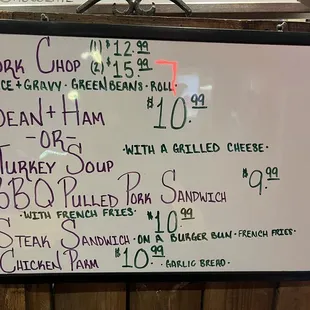 ORK CHOP (1) $12.99
(2) $15.99
CE + GRAVY · GREEN BEANS · ROLL ·
BEAN + HAM $10.99
- OR - · WITH A GRILLED CHEESE ·
TURKEY SOUP
BBQ PULLED PORK SANDWICH $9.99
· WITH FRENCH FRIES · $10.99
STEAK SANDWICH · ON A BURGER BUN · FRENCH FRIES ·
CHICKEN PARM $10.99 · GARLIC BREAD ·